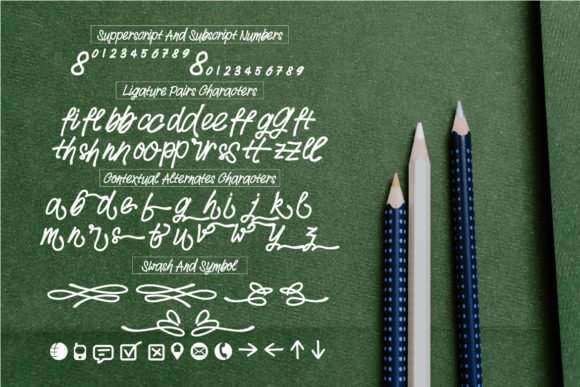 Supperscript And Subscript Numbers
8 0123456789 8 0123456789
Ligature Pairs Characters
fi fl bb cc dd ee ff gg ft
th sh nn oo pp rr ss tt zz ll
Contextual Alternates Characters
a b d e f g h i j k l
m n r s t u v w y z
Swash And Symbol